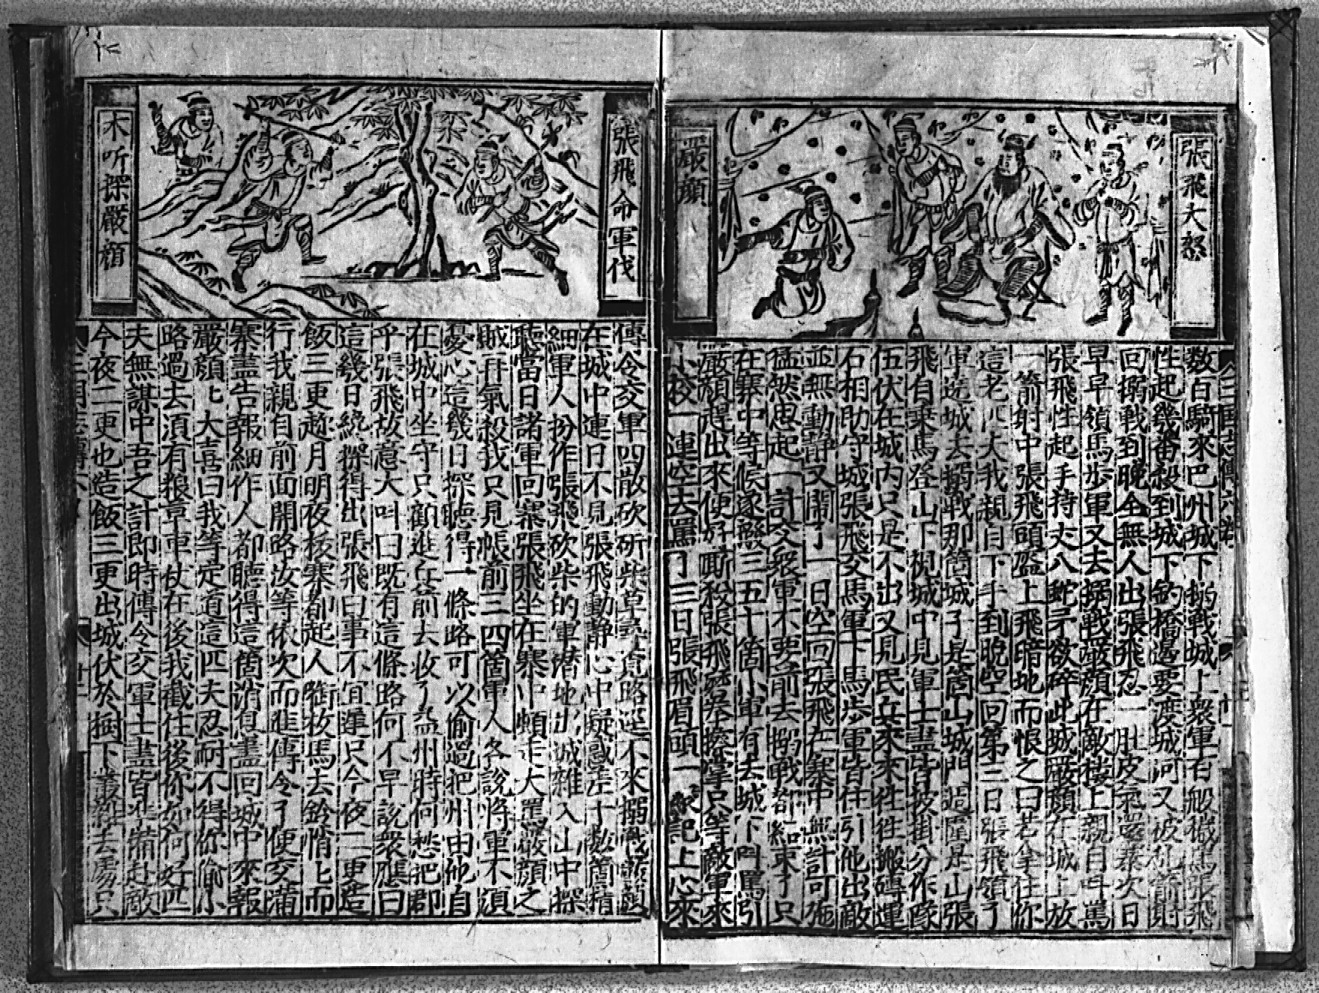 張飛大怒
嚴顔
数百騎來巴州城下搦戰城上衆軍百般穢罵張飛
性起幾番殺到城下釣橋邉要渡城河又被乱箭射
回搦戰到晚全無人出張飛忍一肚皮氣還寨次日
早早領馬歩軍又去搦戰嚴顔在敵楼上親自呌罵
張飛性起手持丈八蛇矛欲碎此城嚴顔在城上放
一箭射中張飛頭盔上飛暗地而恨之曰若拿住你
這老匹夫我親自下手到晚空回第三日張飛領了
軍遶城去搦戰那箇城子是箇山城門週圍是山張
飛自乗馬登山下視城中見軍士盡皆披掛分作隊
伍伏在城内只是不出又見民夫來來往往搬磚運
石相助守城張飛交馬軍下馬歩軍皆住引他出敵
並無動静又閙了一日空回張飛在寨中無計可施
猛然思起一計交衆軍不要前去搦戰都結束了只
在寨中等候遂發三五十箇小軍有去城下呌罵引
嚴顔趕出來便好厮殺張飛磨拳擦掌只等敵軍來
小校一連空去罵了三日張飛眉頭一皺記上心來
張飛命軍伐
木听探嚴顔
傳令交軍四散砍斫柴草尋覓路逕不來搦戰嚴顔
在城中連日不見張飛動静心中凝惑差十数箇精
細軍人扮作張飛砍柴的軍潜地出城雜入山中探
聽當日諸軍回寨張飛坐在寨中頓足大罵嚴顔之
賊再氣殺我只見帳前三四箇軍人各說將軍不須
憂心這幾日探聽得一條路可以偷過把州由他自
在城中坐守只顧進兵前去收了益州時何愁把郡
乎張飛故意大呌曰既有這條路何不早說衆應曰
這幾日纔探得出張飛曰事不宜遲只今夜二更造
飯三更趂月明夜㧞寨都起人衘枚馬去鈴悄上而
行我親自前面開路汝等依次而進傳令了便交蒲
寨盡告報細作人都聴得這箇消息盡回城中來報
嚴顔上大喜曰我等定道這匹夫忍耐不得你偷小
路過去須有粮草車仗在後我截住後你如何好匹
夫無謀中吾之計即時傳令交軍士盡皆准備赴敵
今夜二更也造飯三更出城伏於樹下叢雜去處只